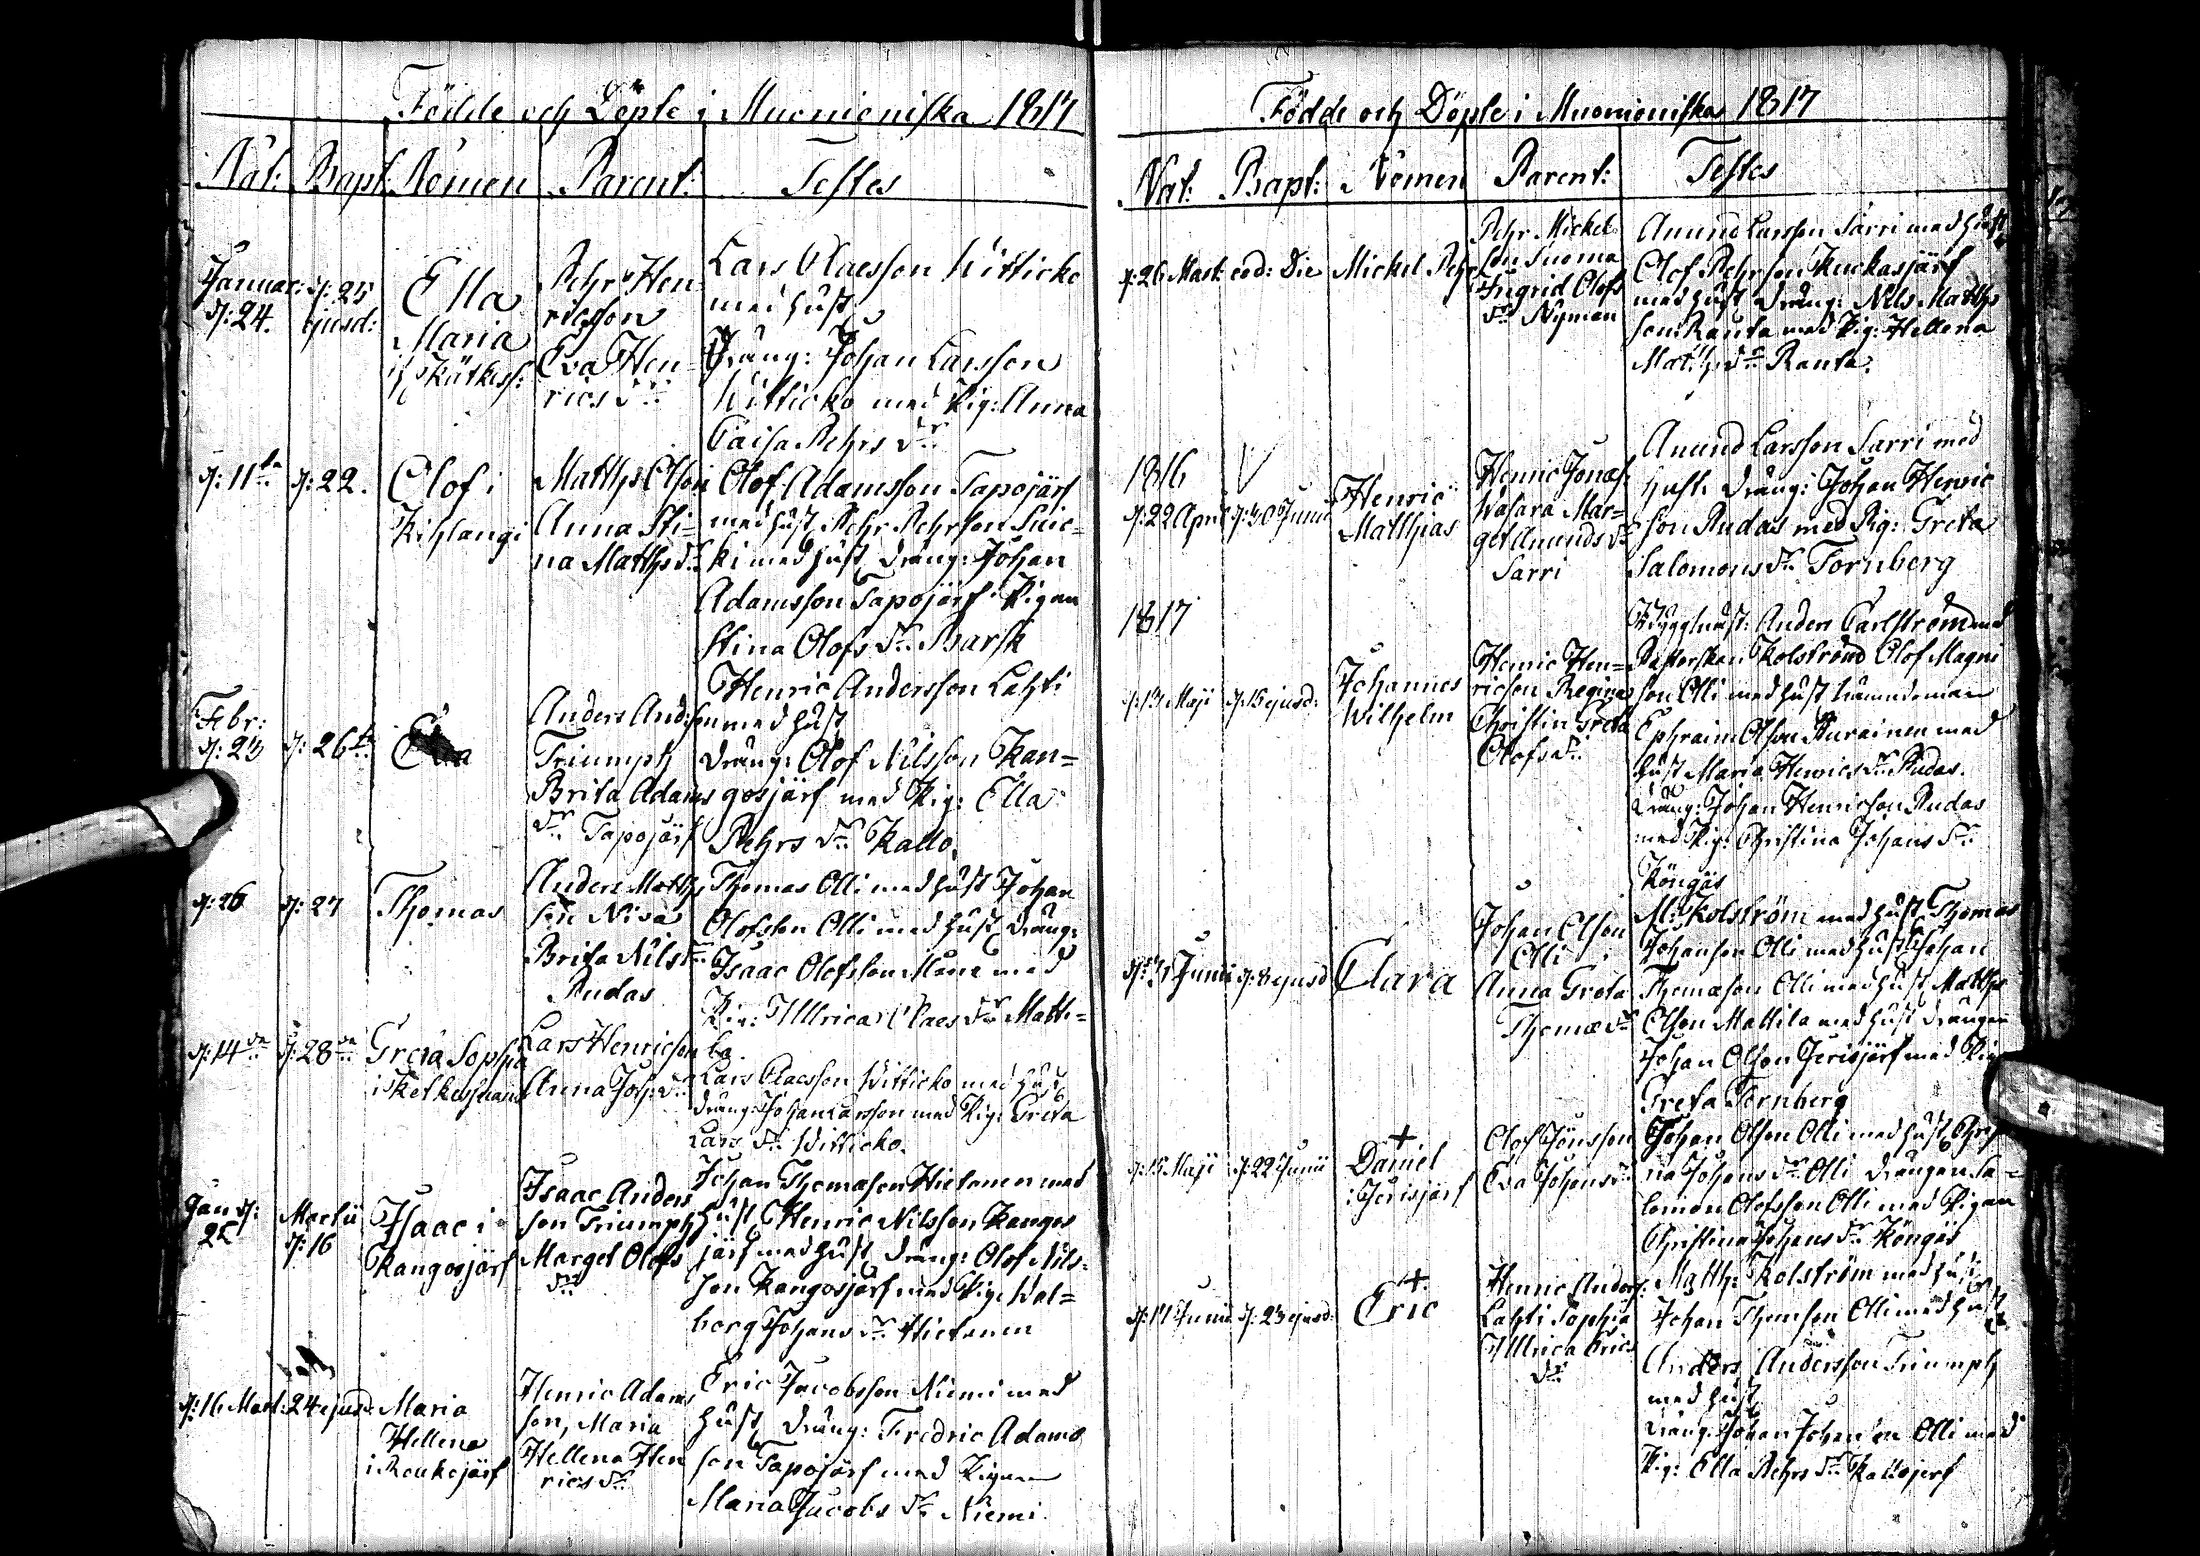 Födde och Döpte i Muonioniska 1817
Nat: Bapt: Nomen Parent: Testes
Januar: d: 24. d: 25 ejusd: Ella Maria i Kätkess:
Pehr Hen-
ricsson
Eva Hen-
rics dr
Lars Claesson Witticko
med hust
Dräng: Johan Larsson
Witticko med Pig: Anna
Caisa Pehrs dr
d: 11te d: 22. Olof i
Kihlangi
Matths Olson
Anna Sti-
na Matths dr
Olof Adamsson Tapojärf
med hust Pehr Pehrson
ki med hust dräng: Johan
Adamsson Tapojärf Pigan
Stina Olofs dr Barsk
Febr:
d: 23 d: 26te
Anders Anders
Triumph
Brita Adams
dr Tapojärf
Henric Andersson Lahti
med hust
dräng: Olof Nilsson Kan-
gosjärf med Pig: Ella
Pehrs dr Kallo.
d: 26 d: 27 Thomas
Anders Matths
son Niva
Brita Nils dr
Rudas
Thomas Olli med hust Johan
Olofsson Olli med hust dräng:
Isaac Olofsson med
Pig: Ullrica Claes dr Matti-
la
d: 14de d: 28de Greta Sophia
i Ketkessuano
Lars Henricson
Anna Joh: dr
Lars Claesson Witticko med hust
dräng: Johan Larsson med Pig: Greta
Lars dr Witticko.
Jan d: 25 Martii d: 16 Isaac i
Kangosjärf
Isaac Anders
son Triumph
Marget Olofs
dr
Johan Thomason Hietanen med
hust Henric Nilsson Kangos
järf med hust dräng: Olof Nils-
son Kangosjärf med Pig: Wal-
borg Johans dr Hietanen
d: 16 Mart: 24 ejusd: Maria
Hellena
i Roukojärf
Henric Adams
son, Maria
Hellena Hen
rics dr
Eric Jacobsson Niemi med
hust dräng: Fredric Adams
son Tapojärf med Pigan
Maria Jacobs dr Niemi
Födde och Döpte i Muonioniska 1817
Nat: Bapt: Nomen Parent: Testes
d: 26 Mart: eod: Die Mickel Pehr
Pehr Mickel
son Suoma
Ingrid Olofs
dr Nyman
Amund Larsson Sarri med hust
Olof Pehrson Kuckasjärf
med hust dräng: Nils Matths
son Rauta med Pig: Hellena
Matths dr Rauta.
1816
d: 22 April d: 30 Junii Henric
Matthias
Henric Jonas:
Wasara Mar-
get Amunds dr
Sarri
Amund Larsson Sarri med
hust. dräng: Johan Henric
son Rudas med Pig: Greta
Salomons dr Fornberg
1817
d: 13 Maji d: 15 ejusd: Johannes
Wilhelm
Henric Hen-
ricson Regina
Christin Greta
Olofs dr
Byggmäst: Anders Carlström med
Pastorskan Kolström Olof Magni
son Olli med hust Nämndeman
Ephraim Olson Kurainen med
hust Maria Henrics dr Rudas.
Dräng: Johan Henricson Rudas
med Pig: Christina Johans dr
Köngäs
d: 3 Junii d: 8 ejusd Clara
Johan Olson
Olli
Anna Greta
Thomæ dr
M: Kolström med hust Thomas
Johanson Olli med hust Johan
Thomason Olli med hust Matths
Olson Mattila med hust drängen
Johan Olson Jerisjärf med Pig
Greta Fornberg
d: 15 Maji d: 22 Junii Daniel
i Jerisjärf
Olof Jönsson
Eva Johans dr
Johan Olson Olli med hust Chris
na Johans dr Olli drängen Sa-
lomon Olofsson Olli med Pigan
Christina Johans dr Köngäs
d: 17 Junii d: 23 ejusd: Eric
Henric Anders:
Lahti Sophia
Ullrica Erics
dr
Matth: Kolström med hust
Johan Thomson Olli med hust
Anders Andersson Triumph
med hust
dräng: Johan Johan Olli med
Pig: Ella Pehrs dr Kallojerf